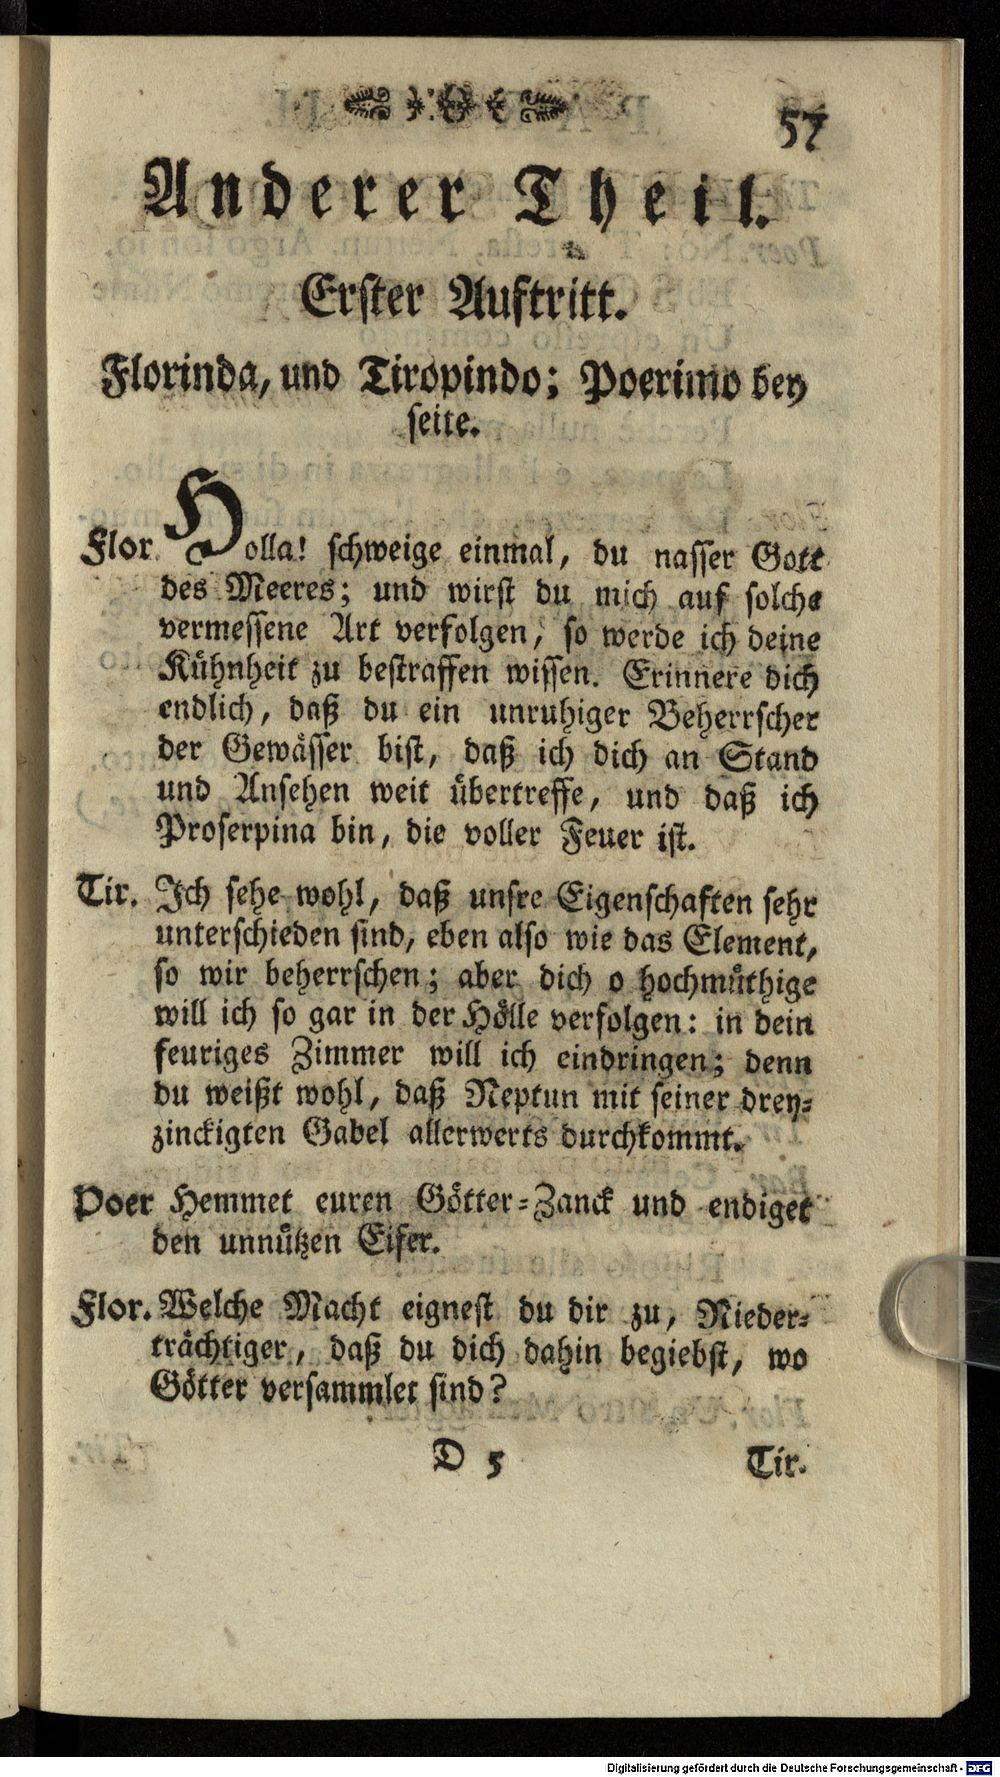 57
Anderer Theil.
Erster Auftritt.
Florinda, und Tiropindo; Poerimo bey
seite.
Flor. Holla! schweige einmal, du nasser Gott
des Meeres; und wirst du mich auf solche
vermessene Art verfolgen, so werde ich deine
Kühnheit zu bestraffen wissen. Erinnere dich
endlich, daß du ein unruhiger Beherrscher
der Gewässer bist, daß ich dich an Stand
und Ansehen weit übertreffe, und daß ich
Proserpina bin, die voller Feuer ist.
Tir. Ich sehe wohl, daß unsre Eigenschaften sehr
unterschieden sind, eben also wie das Element,
so wir beherrschen; aber dich o hochmüthige
will ich so gar in der Hölle verfolgen: in dein
feuriges Zimmer will ich eindringen; denn
du weißt wohl, daß Neptun mit seiner drey-
zinckigten Gabel allerwerts durchkommt.
Poer Hemmet euren Götter-Zanck und endiget
den unnützen Eifer.
Flor. Welche Macht eignest du dir zu, Nieder-
trächtiger, daß du dich dahin begiebst, wo
Götter versammlet sind?
D 5 Tir.
Digitalisierung gefördert durch die Deutsche Forschungsgemeinschaft - DFG